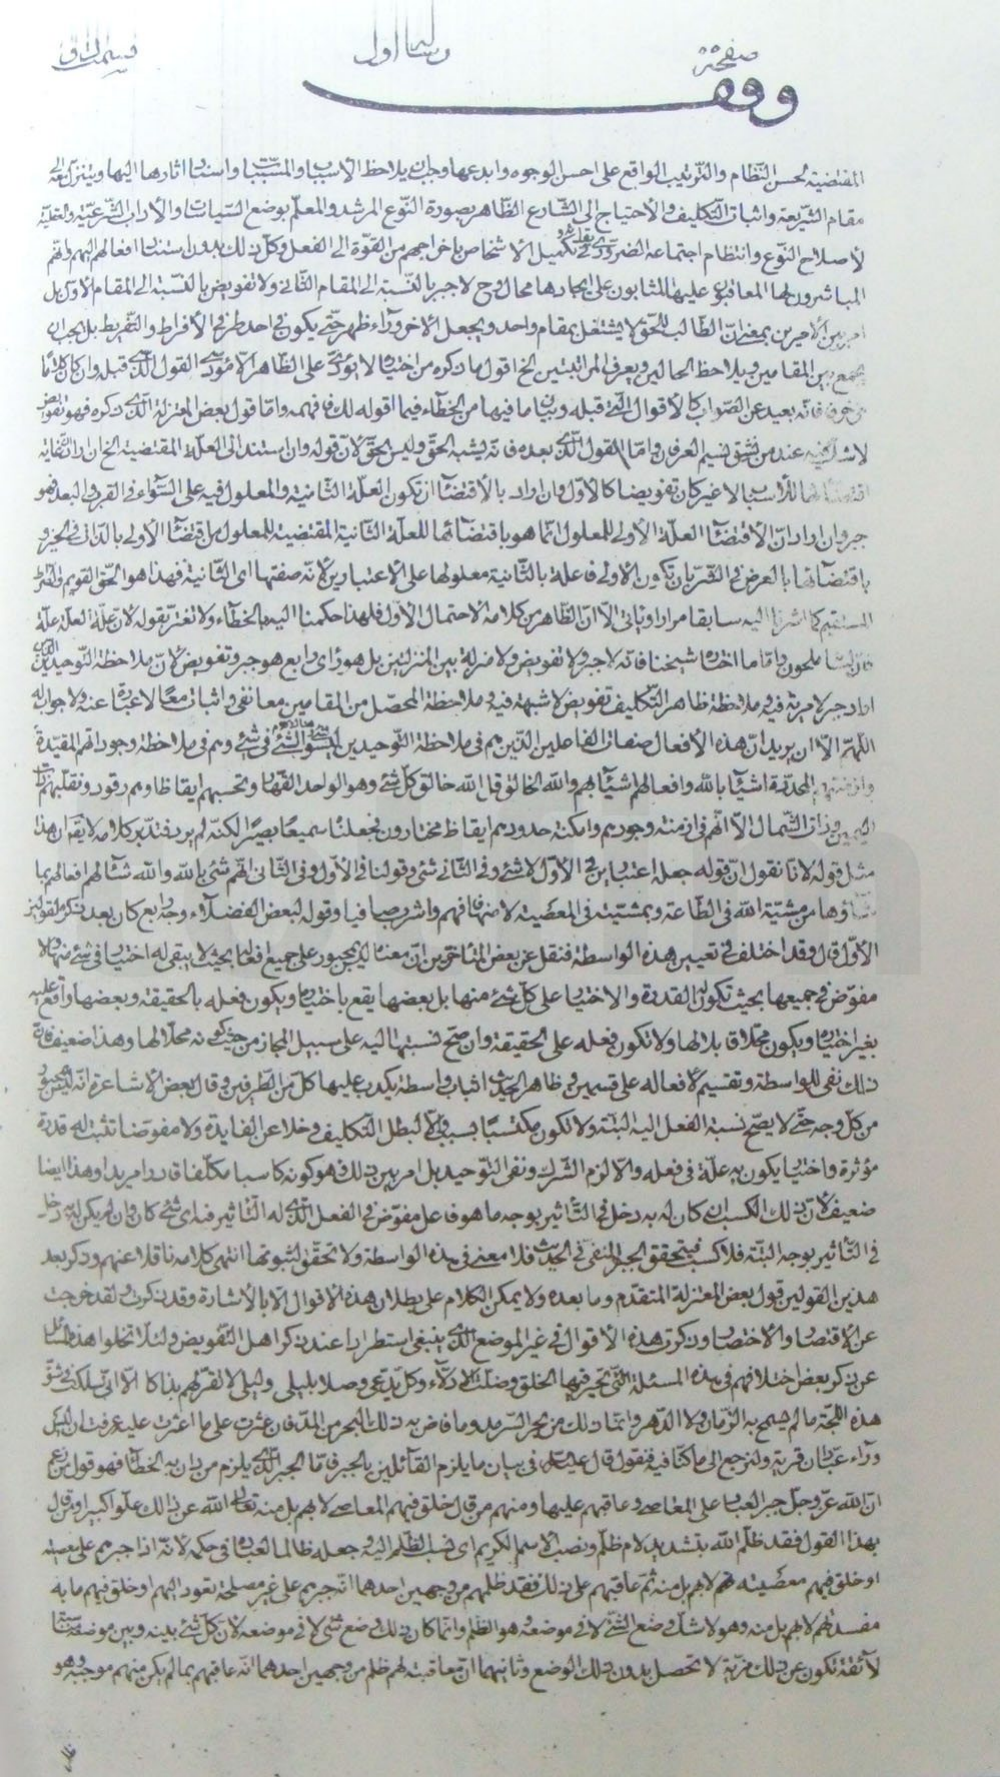 صفحة
رساله اول
وقف
المقتضية لحسن النظام والترتيب الواقع على احسن الوجوه وابدعها وجب ان يلاحظ الاسباب والمسببات واسناد اثارها اليها ويتنزل الى
مقام الشريعة واثبات التكليف والاحتياج الى الشارع الظاهر بصورة النوع المرشد والمعلم بوضع السياسات والاداب الشرعية والعقلية
لاصلاح النوع وانتظام اجتماعه الضروري في تكميل الاشخاص باخراجهم من القوة الى الفعل وكل ذلك بدون استناد افعالهم اليهم وانهم
المباشرون لها المعاقبون عليها المثابون على ايجادها محال وح لا جبر بالنسبة الى المقام الثاني ولا تفويض بالنسبة الى المقام الاول بل
امر بين الامرين بمعنى ان الطالب للحق لا يشتغل بمقام واحد ويجعل الاخر وراء ظهره حتى يكون في احد طرفي الافراط والتفريط بل يجب ان
يجمع بين المقامين ويلاحظ الحالين ويعرف المراتبتين الخ اقول ما ذكره من اختياره لا يؤدي على الظاهر الا مؤدى القول الذي قبله وان كان كلاما
فانه بعيد عن الصواب كالاقوال التي قبله وبيان ما فيها من الخطاء فيما اقوله لك فافهمه واما قول بعض المعتزلة الذي ذكره فهو تفويض
لا شك فيه عند من تنشق نسيم العرفان واما القول الذي بعده فانه يشبه الحق وليس بحق لان قوله وان استند الى العلة المقتضية الخ ان اراد انتهاء
اقتضائها للاسباب لا غير كان تفويضا كالاول وان اراد بالاقتضاء ان تكون العلة الثانية والمعلول فيه على السواء في القرب والبعد فهو
جبر وان اراد ان الاقتضاء العلة الاولى للمعلول انما هو باقتضائها للعلة الثانية المقتضية للمعلول من اقتضاء الاولى بالذات في الخير و
باقتضائها بالعرض في الشر بان تكون الاولى فاعلة بالثانية معلولها على الاعتبارين لانه صفتها اى الثانية فهذا هو الحق القويم والصراط
المستقيم كما اشرنا اليه سابقا مرارا وياتى الا ان الظاهر من كلامه الاحتمال الاول فلهذا حكمنا اليه بالخطاء ولا تغتر بقوله لان علة العلة علة
واما ما اختاره شيخنا فانه لا جبر ولا تفويض ولا منزلة بين المنزلتين بل هو رأى رابع هو جبر وتفويض لان ملاحظة التوحيد الذي
اراد جبر لا مرية فيه وملاحظة ظاهر التكليف تفويض لا شبهة فيه وملاحظة المحصل من المقامين معا نفى واثبات معا لا عبارة عنه ولا جواب له
اللهم الا ان يريد ان هذه الافعال صفات الفاعلين الذين هم في ملاحظة التوحيد ليسوا بشئ في شئ وهم في ملاحظة وجوداتهم المقيدة
اشياء بالله وافعالهم اشياء بهم والله الخالق قل الله خالق كل شئ وهو الواحد القهار وتحسبهم ايقاظا وهم رقود ونقلبهم ذات
اليمين وذات الشمال الا انهم في ازمنة وجودهم وامكنة حدودهم ايقاظ مختارون فجعلناه سميعا بصيرا لكنه لم يرد فتدبر كلامه لا يقال ان هذا
مثل قوله لانا نقول ان قوله جعله اعتبارين في الاول لا شئ وفي الثانى شئ وقولنا في الاول وفي الثانى انهم شئ بالله والله شاء لهم افعالهم بما
شاؤها من مشية الله في الطاعة وبمشيته في المعصية لا منها فافهم واشرب صافيا وقوله لبعض الفضلاء وجه رابع كان بعد ذكره لقولين
الاول قال وقد اختلف في تعيين هذه الواسطة فنقل عن بعض المتاخرين ان معناه ليس بمجبور على جميع افعاله بحيث لا يبقى له اختيار في شئ منها ولا
مفوض في جميعها بحيث تكون له القدرة والاختيار على كل شئ منها بل بعضها يقع باختياره ويكون فعله بالحقيقة وبعضها واقع عليه
بغير اختياره ويكون محلا قابلا لها ولا تكون فعله على الحقيقة وان صح نسبتها اليه على سبيل المجاز من حيث كونه محلا لها وهذا ضعيف فان
ذلك نفى للواسطة وتقسيم لافعاله على قسمين وظاهر الحديث اثبات واسطة يكذب عليها كل من الطرفين وقال بعض الاشاعرة انه ليس بمجبور
من كل وجه حتى لا يصح نسبة الفعل اليه البتة ولا تكون مكتسبا بسببه والا لبطل التكليف وخلا عن الفايدة ولا مفوضا تثبت له قدرة
مؤثرة واختيار يكون به علة في فعله والا لزم الشرك ونفى التوحيد بل امر بين ذلك فهو كونه كاسبا مكلفا قادرا مريدا وهذا ايضا
ضعيف لان ذلك الكسب ان كان له به دخل في التأثير بوجه ما هو فاعل مفوض في الفعل الذى له التأثير فيه اى شئ كان وان لم يكن له دخل
في التأثير بوجه البتة فلا كسب فيتحقق الجبر المنفى في الحديث فلا معنى في هذه الواسطة ولا تحقق لثبوتها انتهى كلامه ناقلا عنهم وذكر بعد
هذين القولين قول بعض المعتزلة المتقدم وما بعده ولا يمكن الكلام على بطلان هذه الاقوال الا بالاشارة وقد ذكرت ولقد خرجت
عن الاقتصار والاختصار وذكرت هذه الاقوال في غير الموضع الذى ينبغى استطرادا عند ذكر اهل التفويض ولئلا تخلوا هذه المسألة
عن ذكر بعض اختلافهم في هذه المسئلة التي تحير فيها الخلق وضلت الادلاء وكل يدعى وصلا بليلى وليلى لا تقر لهم بذاكا الا انى سلكت في شق
هذه اللجة ما لم يسمح به الزمان ولا الدهر وانما ذلك من بحر السرمد وما فاض به ذلك البحر من المدد فان عثرت على ما اعثرت عليه عرفت ان ليس
وراء عبادان قرية ولنرجع الى ما كنا فيه فنقول قال عليه السلم في بيان ما يلزم القائلين بالجبر فاما الجبر الذى يلزم من دان به الخطأ فهو قول من زعم
ان الله عز وجل جبر العباد على المعاصى وعاقبهم عليها ومنهم من قال خلق فيهم المعاصى لا بهم بل منه تعالى الله عن ذلك علوا كبيرا ومن قال
بهذا القول فقد ظلّم الله بتشديد لام ظلم ونصب الاسم الكريم اى نسب الظلم اليه وجعله ظالما لعباده في حكمه لانه اذا جبرهم على معصيته
او خلق فيهم معصيته لا بهم بل منه ثم عاقبهم على ذلك فقد ظلمهم من وجهين احدهما انه جبرهم على غير مصلحة تعود اليهم او خلق فيهم ما به
مفسدتهم لا بهم بل منه وهو لا شك وضع الشئ لا في موضعه وهو الظلم وانما كان ذلك وضع شئ لا في موضعه لان كل شئ بينه وبين موضعه
لائقة تكون عن ذلك مزية لا تحصل بدون ذلك الوضع وثانيهما ان معاقبته لهم ظلم من وجهين احدهما انه عاقبهم بما لم يكن منهم موجبه وهو